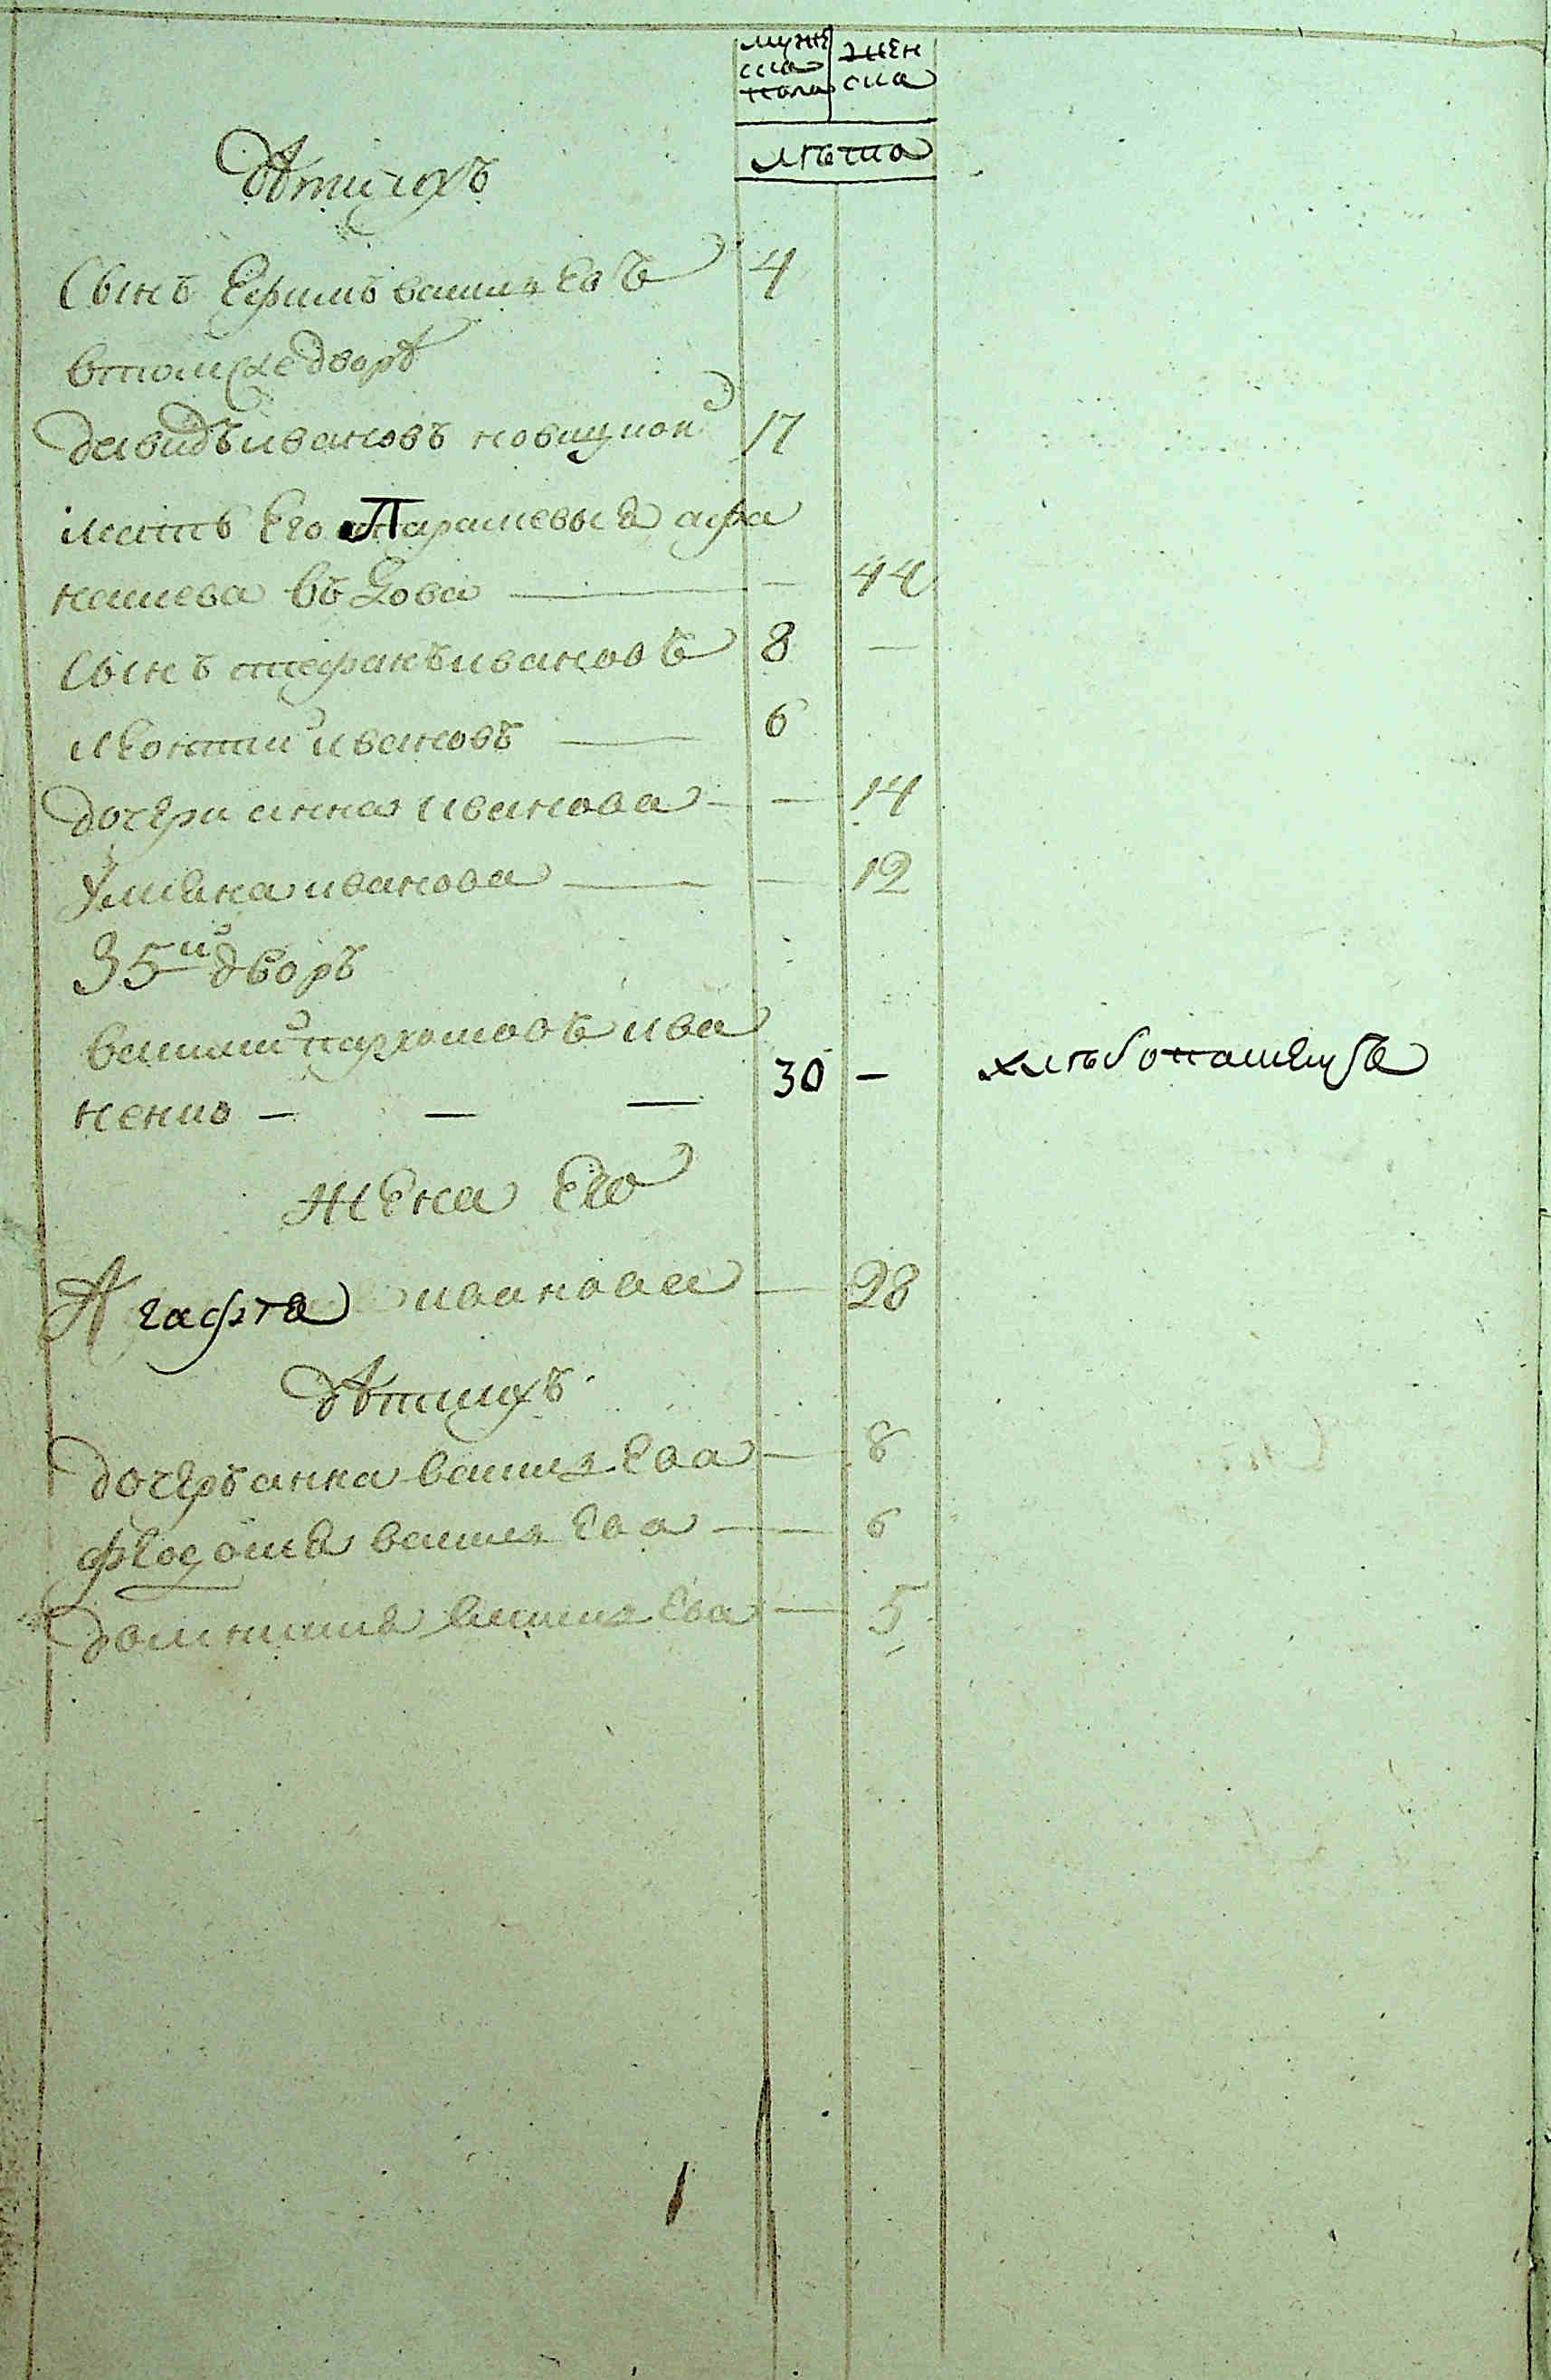 муже жен
ска ска
пола
лѣта
дѣти ихъ
Сынъ Ефимъ василевъ 4
втомже дворѣ
давидъ ивановъ новицкой 17
мать Его Параскевыя афа
насиева вдова — — 44
Сынъ стефанъ ивановъ 8 —
леонтий ивановъ — 6
дочери анна иванова — — 14
Улияна иванова — — 12
35й дворъ
василий пархомовъ ива
ненко — — — 30 — хлѣбопашецъ
жена Его
Агафія иванова — 28
дѣти ихъ
дочеръ анна василева — 8
феодосия василева — 6
домникия василева — 5